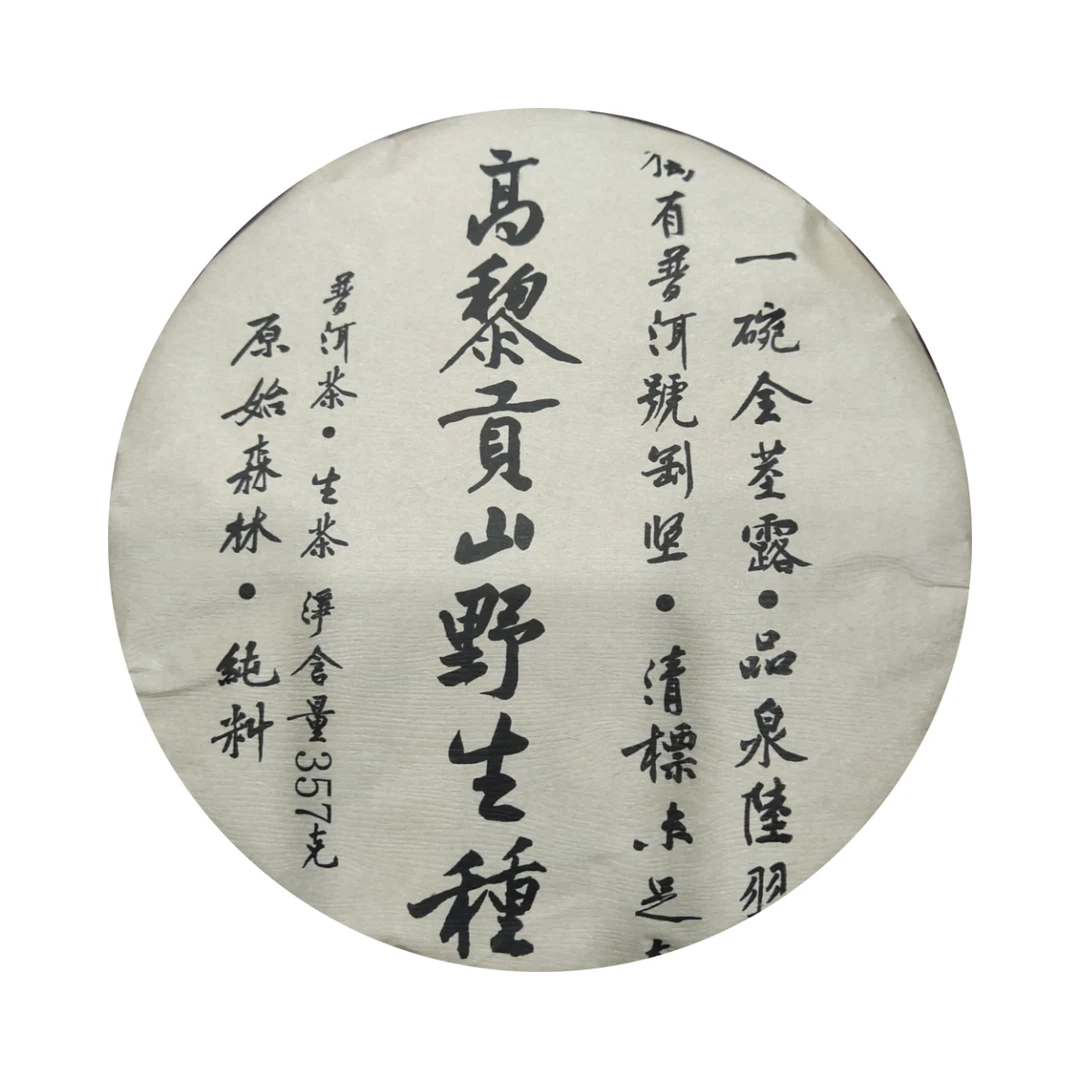 一碗金茎露•品泉陸羽
獨有普洱號剛坚•清標未足
高黎貢山野生種
普洱茶•生茶 淨含量357克
原始森林•純料